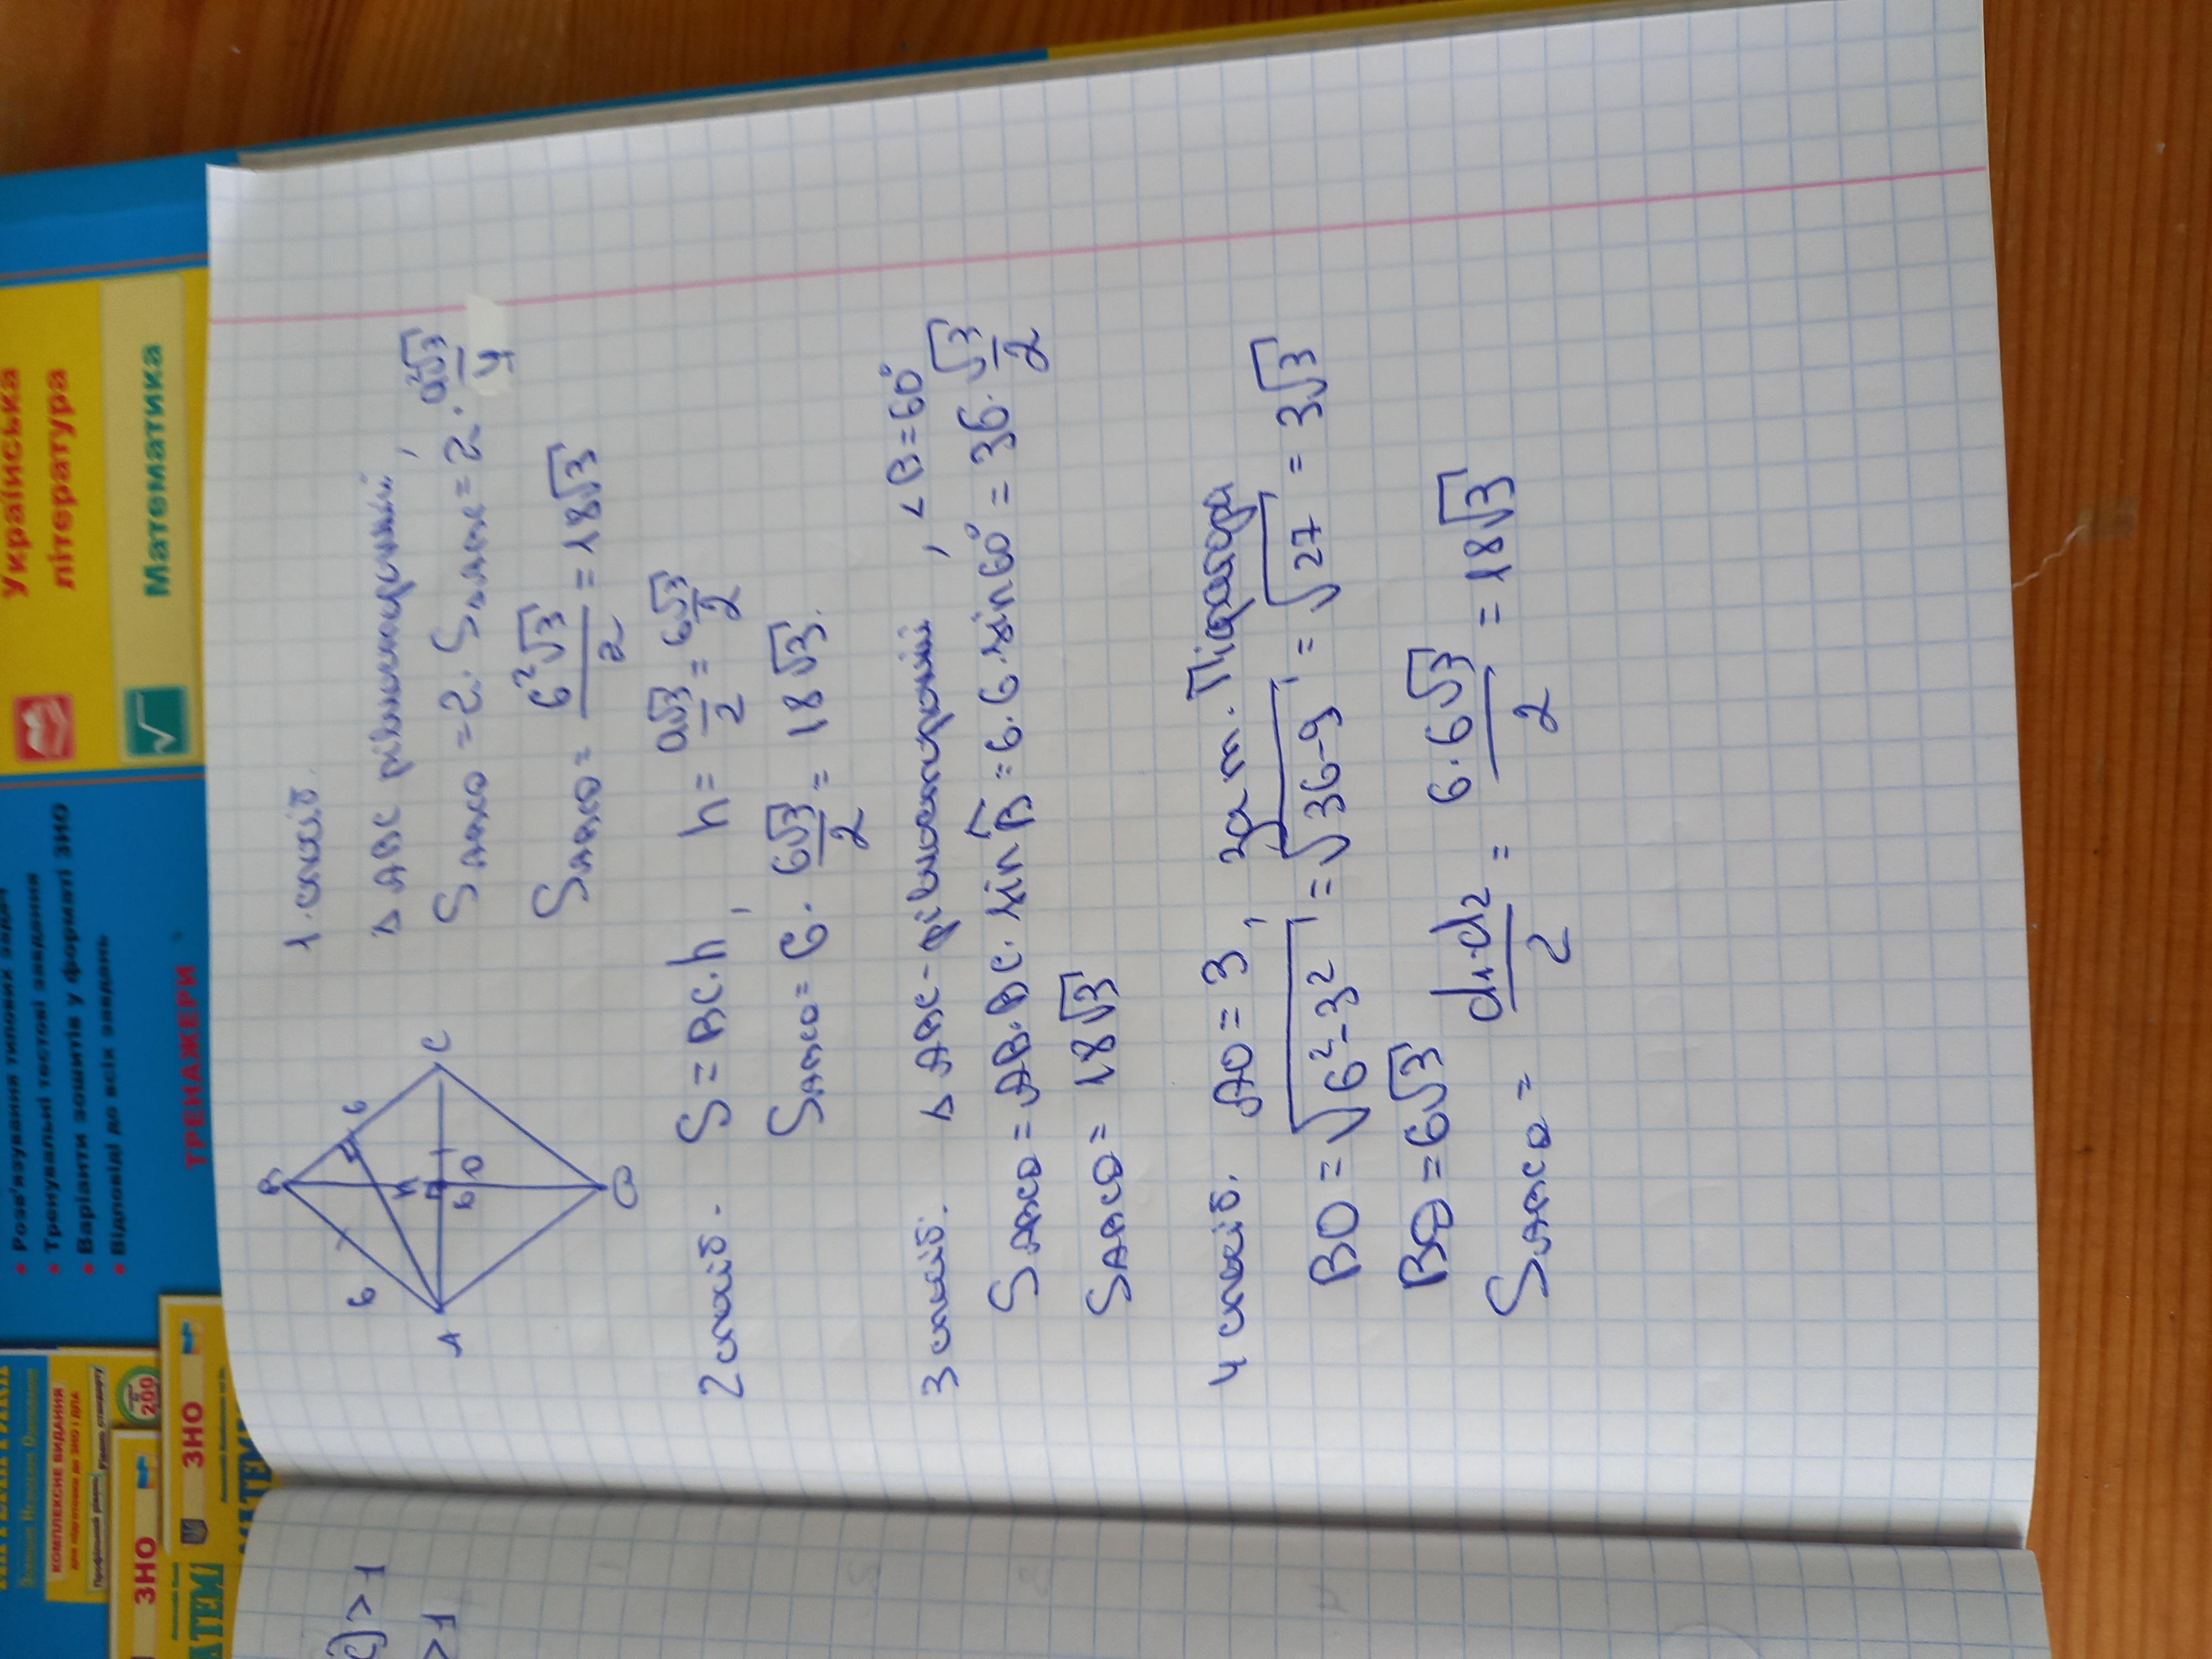 Українська
література
Математика
• Розв'язування типових задач
• Тренувальні тестові завдання
• Варіанти зошитів у форматі ЗНО
• Відповіді до всіх завдань
ТРЕНАЖЕРИ
КОМПЛЕКСНЕ ВИДАННЯ
для підготовки до ЗНО і ДПА
Профільний рівень
Рівень стандарту
200
ЗНО
ЗНО
МАТЕМ
АТЕМ
) > 1
> 1
B
6
6
K
A
6
O
C
D
1. спосіб.
Δ ABC рівносторонній,
S ABCD = 2 · SΔABC = 2 · a²√3/4
S ABCD = 6²√3/2 = 18√3
2 спосіб. S = BC · h, h = a√3/2 = 6√3/2
S ABCD = 6 · 6√3/2 = 18√3.
3 спосіб. Δ ABC - рівносторонній, <B = 60°
S ABCD = AB · BC · sin B = 6 · 6 · sin 60° = 36 · √3/2
S ABCD = 18√3
4 спосіб. AO = 3, за т. Піфагора
BO = √6²-3² = √36-9 = √27 = 3√3
BD = 6√3
S ABCD = d₁·d₂/2 = 6·6√3/2 = 18√3